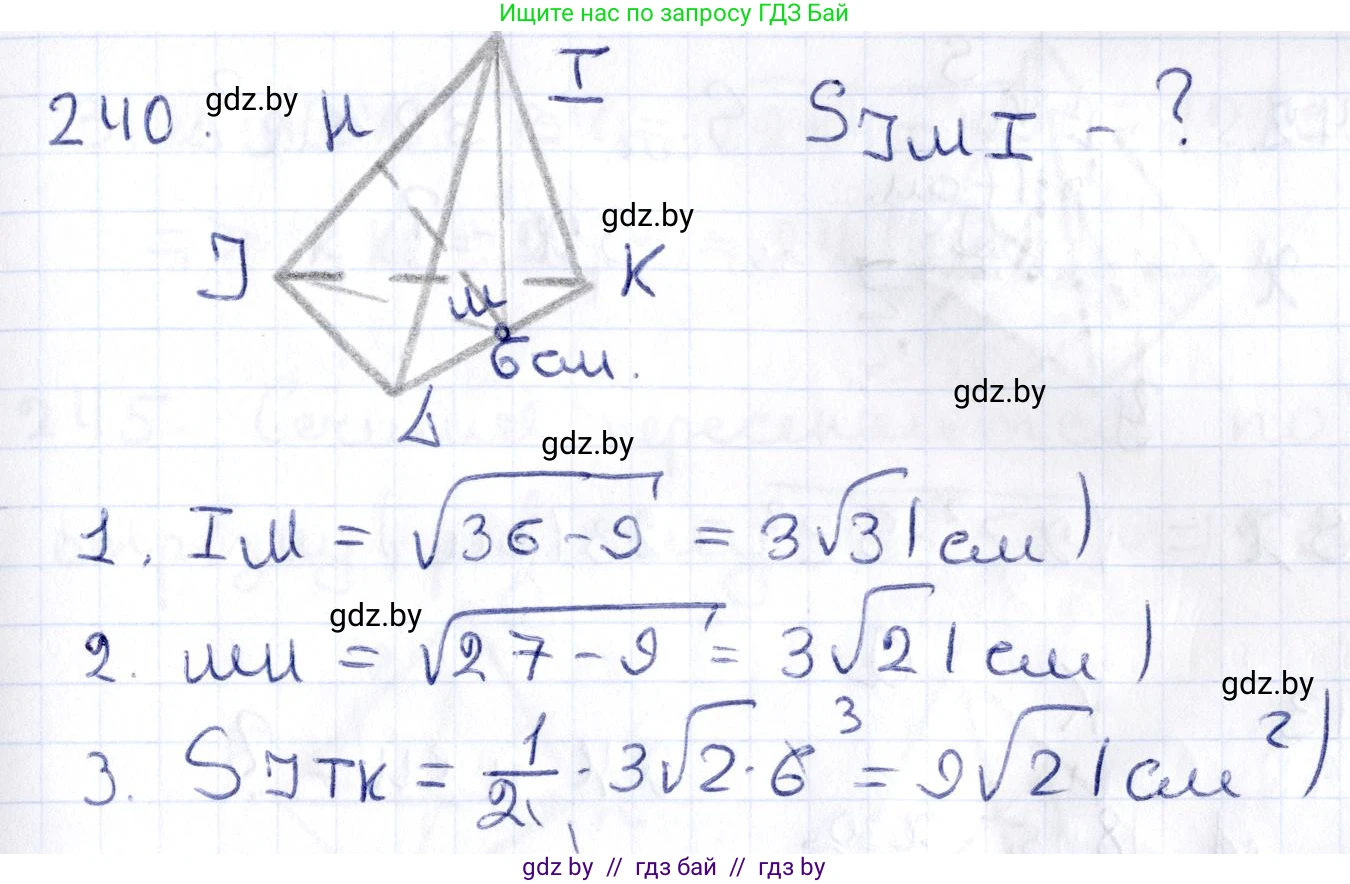 Ищите нас по запросу ГДЗ Бай
240. gdz.by H I S JMI - ?
gdz.by
J K
M
6 см.
gdz.by
L
gdz.by
1. IM = √36-9 = 3√3 (см)
gdz.by
2. MH = √27-9 = 3√2 (см)
gdz.by
3. S JTK = 1/2 · 3√2 · 6 3 = 9√2 (см²)
1
gdz.by // гдз бай // гдз by